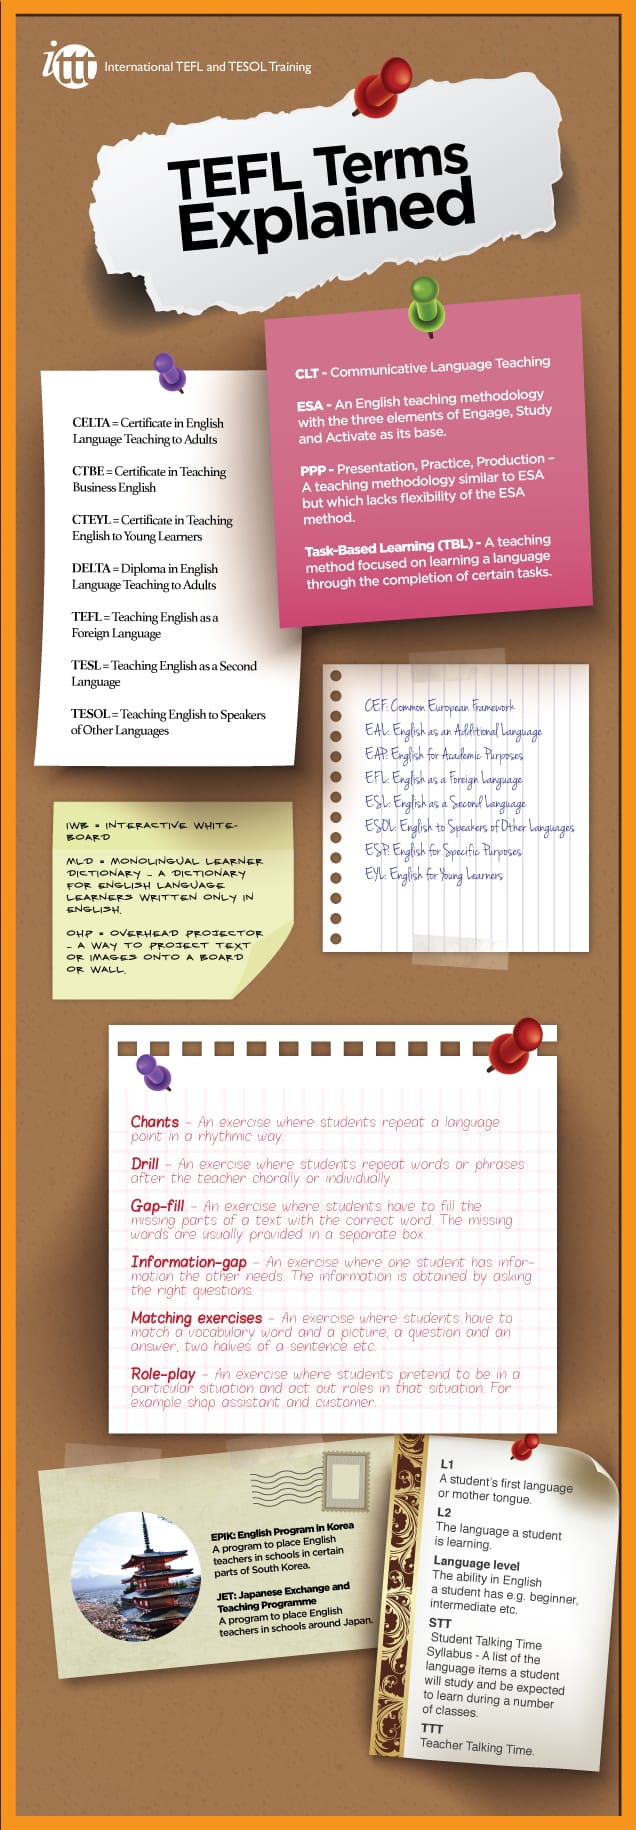 ittt International TEFL and TESOL Training
TEFL Terms
Explained
CLT - Communicative Language Teaching
ESA - An English teaching methodology
with the three elements of Engage, Study
and Activate as its base.
PPP - Presentation, Practice, Production –
A teaching methodology similar to ESA
but which lacks flexibility of the ESA
method.
Task-Based Learning (TBL) - A teaching
method focused on learning a language
through the completion of certain tasks.
CELTA = Certificate in English
Language Teaching to Adults
CTBE = Certificate in Teaching
Business English
CTEYL = Certificate in Teaching
English to Young Learners
DELTA = Diploma in English
Language Teaching to Adults
TEFL = Teaching English as a
Foreign Language
TESL = Teaching English as a Second
Language
TESOL = Teaching English to Speakers
of Other Languages
CEF: Common European Framework
EAL: English as an Additional Language
EAP: English for Academic Purposes
EFL: English as a Foreign Language
ESL: English as a Second Language
ESOL: English to Speakers of Other Languages
ESP: English for Specific Purposes
EYL: English for Young Learners
IWB = INTERACTIVE WHITE-
BOARD
MLD = MONOLINGUAL LEARNER
DICTIONARY – A DICTIONARY
FOR ENGLISH LANGUAGE
LEARNERS WRITTEN ONLY IN
ENGLISH.
OHP = OVERHEAD PROJECTOR
– A WAY TO PROJECT TEXT
OR IMAGES ONTO A BOARD
OR WALL.
Chants – An exercise where students repeat a language
point in a rhythmic way.
Drill – An exercise where students repeat words or phrases
after the teacher chorally or individually.
Gap-fill – An exercise where students have to fill the
missing parts of a text with the correct word. The missing
words are usually provided in a separate box.
Information-gap – An exercise where one student has infor-
mation the other needs. The information is obtained by asking
the right questions.
Matching exercises – An exercise where students have to
match a vocabulary word and a picture, a question and an
answer, two halves of a sentence etc.
Role-play – An exercise where students pretend to be in a
particular situation and act out roles in that situation. For
example shop assistant and customer.
EPIK: English Program in Korea
A program to place English
teachers in schools in certain
parts of South Korea.
JET: Japanese Exchange and
Teaching Programme
A program to place English
teachers in schools around Japan.
L1
A student's first language
or mother tongue.
L2
The language a student
is learning.
Language level
The ability in English
a student has e.g. beginner,
intermediate etc.
STT
Student Talking Time
Syllabus - A list of the
language items a student
will study and be expected
to learn during a number
of classes.
TTT
Teacher Talking Time.